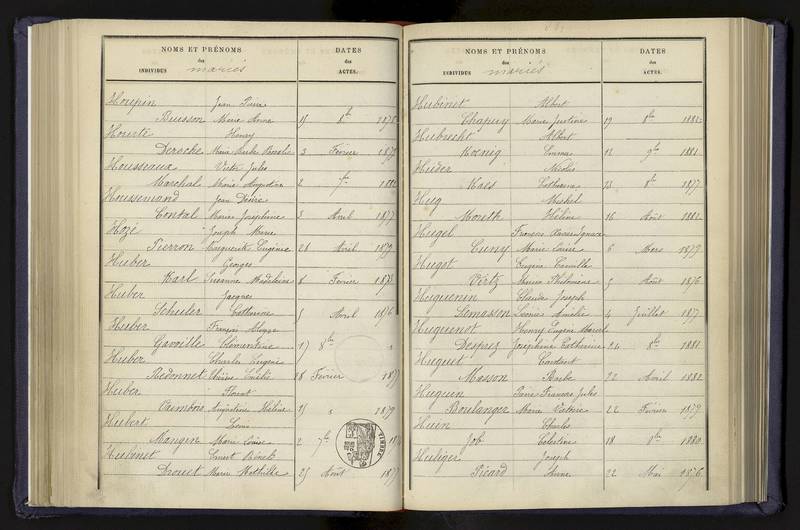 NOMS ET PRÉNOMS DATES
des des
INDIVIDUS mariés ACTES.
Houpin Jean Pierre
Buisson Marie Anne 15 8bre 1875
Henry
Deroche Marie Barbe Rosalie 3 Février 1879
Housseaux Victor Jules
Marchal Marie Augustine 2
Houssemand Jean Désiré
Contal Marie Joséphine 3 Avril 1877
Hozé Joseph Marie
Pierron Marguerite Eugénie 26 Avril 1879
Huber Georges
Karl Suzanne Madeleine 8 Février 1873
Huber Jacques
Schuler Catherine 5 Avril 1876
Huber François
Gavoille Clémentine 17 8bre "
Huber Charles Eugène
Redonnet Marie Emélie 28 Février 1877
Huber Florent
Augustine Hélène 25 " 1879
Hubert Louis
Mangin Marie Louise 2 7bre
Hubinet Ernest
Drouet Marie Mathilde 25 Août 187
TIMBRE
NOMS ET PRÉNOMS DATES
des des
INDIVIDUS mariés ACTES.
Hubinet Albert
Chapuy Marie Justine 19 8bre 1882
Hubrecht Albert
Koenig Emma 12 9bre 1881
Huder Nicolas
Kaes Catherine 23 8bre 1877
Hug Michel
Mouth Hélène 16 Août 1882
Hugel François Xavier Ignace
Cuny Marie Louise 6 Mars 1879
Hugot Eugène Camille
Virtz Maria Philomène 5 Août 1876
Huguenin Claude Joseph
Lemasson Léonie Amélie 4 Juillet 1877
Huguenot Henry Eugène Marcel
Desprez Joséphine Catherine 24 8bre 1881
Huguet Constant
Masson Barbe 22 Avril 1882
Huguin Pierre François Jules
Boulanger Marie Victoire 22 Février 1879
Huin Charles
Job Célestine 18 9bre 1880
Huliger Joseph
Picard Anne 22 Mai 1876